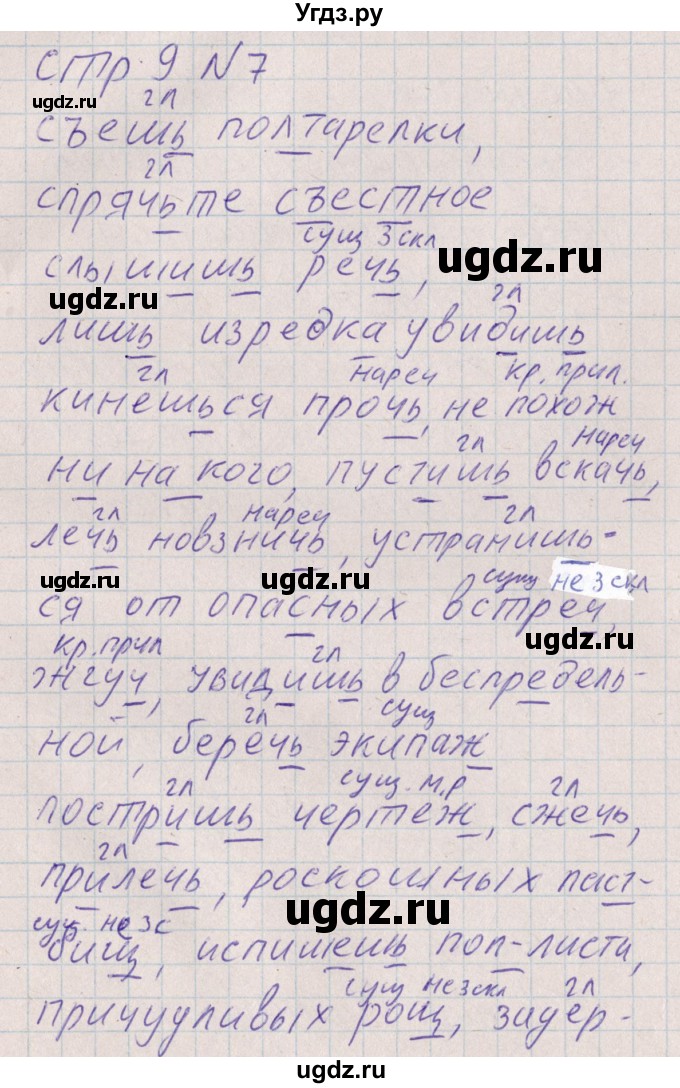 Угдз.ру
стр 9 N7
ugdz.ru
гл
съешь полтарелки,
гл
спрячьте съестное
сущ 3 скл
ugdz.ru
слышишь речь,
ugdz.ru
гл
лишь изредка увидишь
ugdz.ru
гл нареч кр. прил.
кинешься прочь, не похож
гл нареч
ни на кого, пустишь вскачь,
гл нареч гл
лечь новзничь, устранишь-
ugdz.ru
сущ не 3 скл
ся от опасных встреч,
ugdz.ru
кр. прил гл
жгуч, увидишь в беспредель-
гл сущ
ной, беречь экипаж
ugdz.ru
гл сущ. м.р гл
постришь чертеж, сжечь,
гл
прилечь, роскошных паст-
ugdz.ru
сущ. не 3 с
бищ, испишешь пол-листа,
сущ не 3 скл гл
причудливых рощ, задер-
ugdz.ru
ugdz.ru